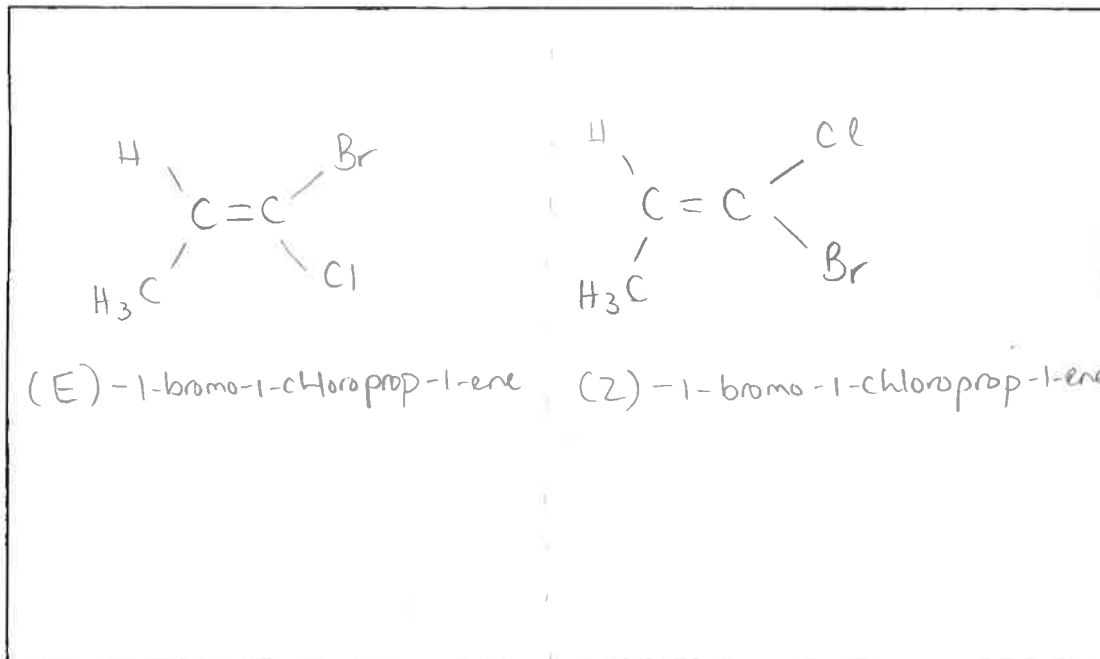 H Br
C=C
H3C Cl
(E)-1-bromo-1-chloroprop-1-ene
H Cl
C=C
H3C Br
(Z)-1-bromo-1-chloroprop-1-ene